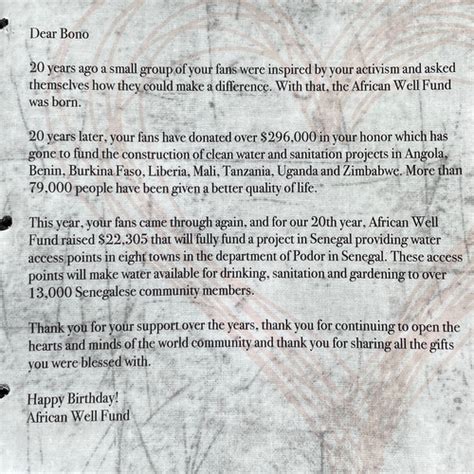 Dear Bono
20 years ago a small group of your fans were inspired by your activism and asked
themselves how they could make a difference. With that, the African Well Fund
was born.
20 years later, your fans have donated over $296,000 in your honor which has
gone to fund the construction of clean water and sanitation projects in Angola,
Benin, Burkina Faso, Liberia, Mali, Tanzania, Uganda and Zimbabwe. More than
79,000 people have been given a better quality of life.
This year, your fans came through again, and for our 20th year, African Well
Fund raised $22,305 that will fully fund a project in Senegal providing water
access points in eight towns in the department of Podor in Senegal. These access
points will make water available for drinking, sanitation and gardening to over
13,000 Senegalese community members.
Thank you for your support over the years, thank you for continuing to open the
hearts and minds of the world community and thank you for sharing all the gifts
you were blessed with.
Happy Birthday!
African Well Fund